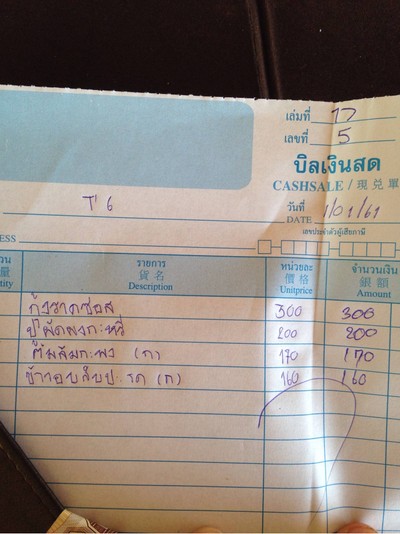 เล่มที่ 17
เลขที่ 5
บิลเงินสด
CASHSALE / 現兑單
T 6
วันที่
DATE 1/01/61
เลขประจำตัวผู้เสียภาษี
ESS
วน รายการ หน่วยละ จำนวนเงิน
量 貨名 價格 銀額
tity Description Unitprice Amount
กุ้งราดซอส 300 300
ปูผัดผงกะหรี่ 200 200
ต้มส้มกะพง (ก) 170 170
ข้าวอบสับปะรด (ก) 160 160